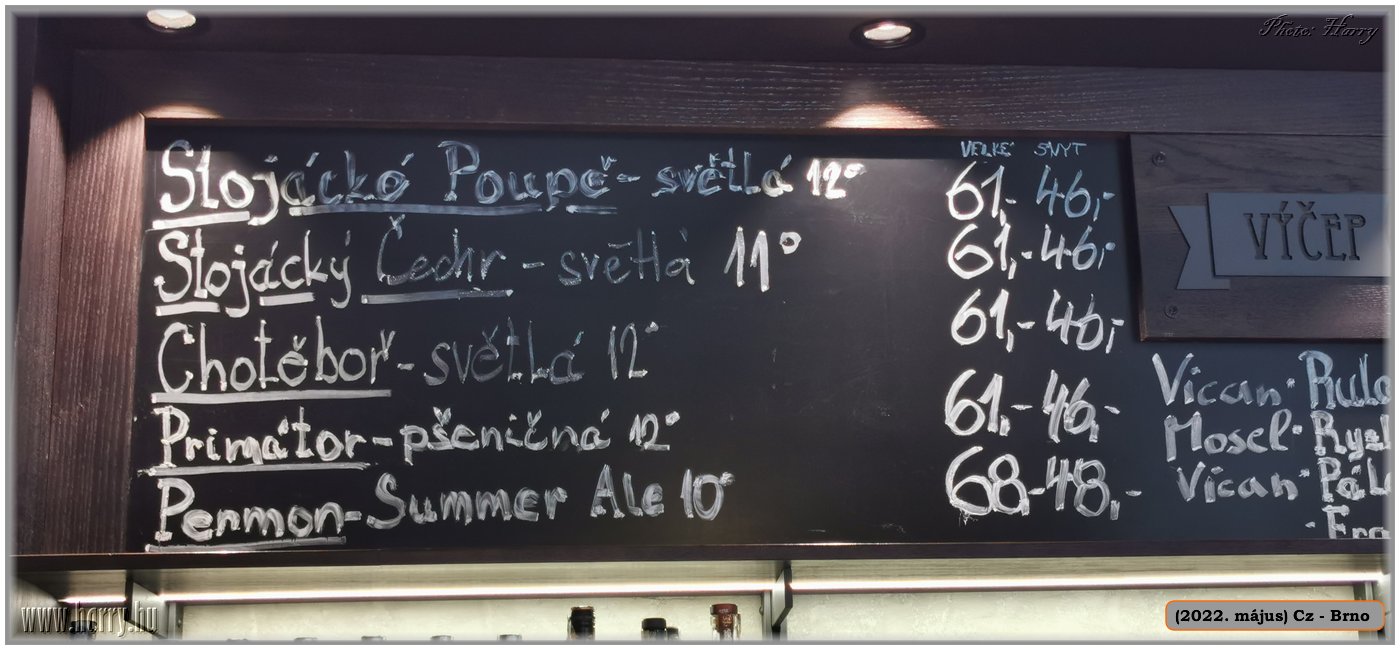 Photo: Harry
VELKÉ SNYT
Stojácké Poupě - světlá 12° 61,- 46,-
Stojácký Čechr - světlá 11° 61,- 46,-
Chotěboř - světlá 12° 61,- 46,-
Primátor - pšeničná 12° 61,- 46,-
Permon - Summer Ale 10° 68,- 48,-
VÝČEP
Vican - Rula
Mosel - Ryzl
Vican - Pál
www.horry.hu
(2022. május) Cz - Brno